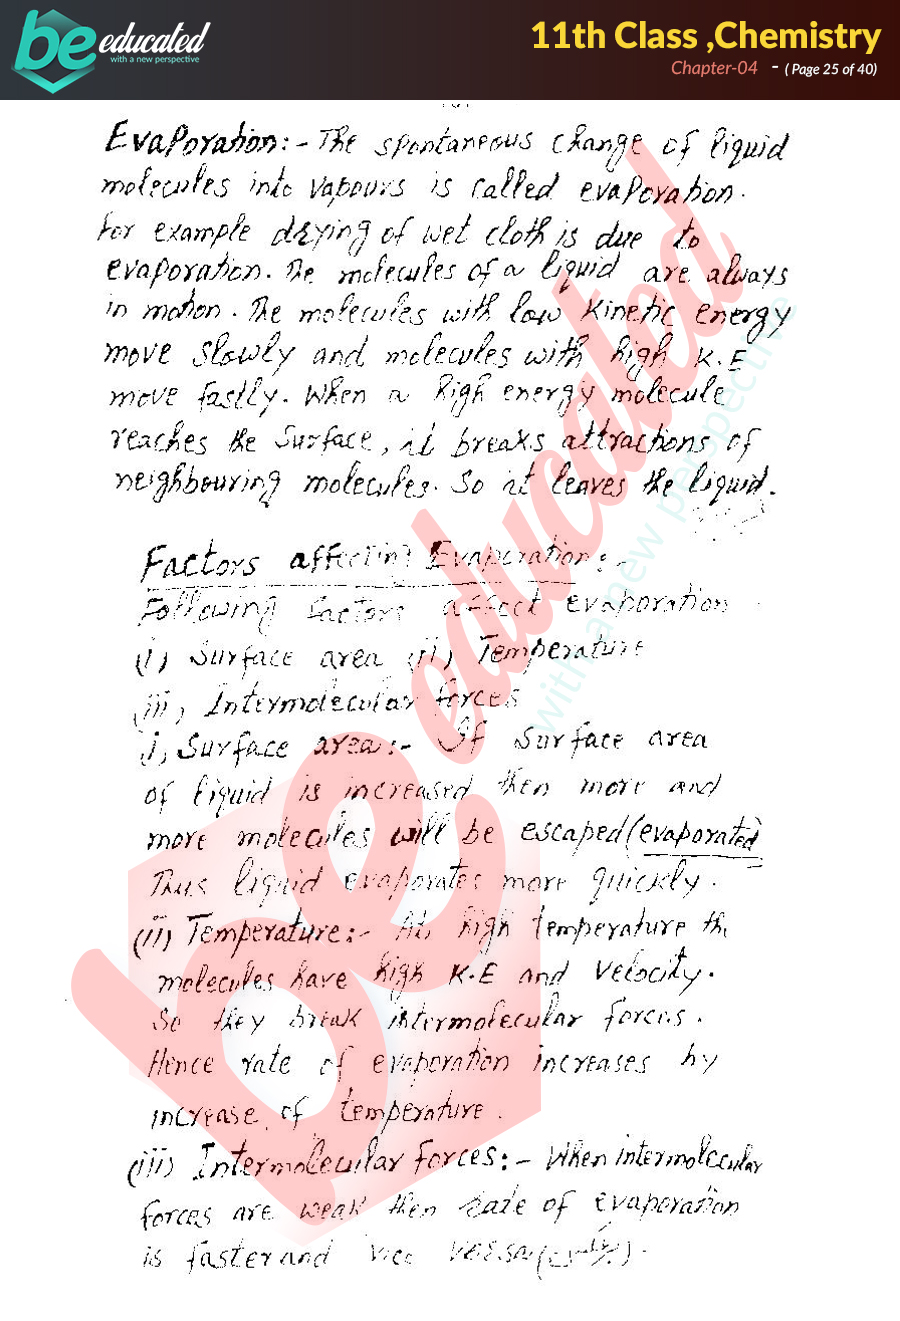 be educated
with a new perspective
11th Class ,Chemistry
Chapter-04 - ( Page 25 of 40)
Evaporation:- The spontaneous change of liquid
molecules into vapours is called evaporation.
For example drying of wet cloth is due to
evaporation. The molecules of a liquid are always
in motion. The molecules with low kinetic energy
move slowly and molecules with high K.E
move fastly. When a high energy molecule
reaches the surface, it breaks attractions of
neighbouring molecules. So it leaves the liquid.
Factors affecting Evaporation:-
Following factors affect evaporation
(i) Surface area (ii) Temperature
(iii) Intermolecular forces
i) Surface area:- If surface area
of liquid is increased then more and
more molecules will be escaped (evaporated)
Thus liquid evaporates more quickly.
(ii) Temperature:- At high temperature the
molecules have high K.E and velocity.
So they break intermolecular forces.
Hence rate of evaporation increases by
increase of temperature.
(iii) Intermolecular Forces:- When intermolecular
forces are weak then rate of evaporation
is faster and vice versa ( ).
be educated
with a new perspective